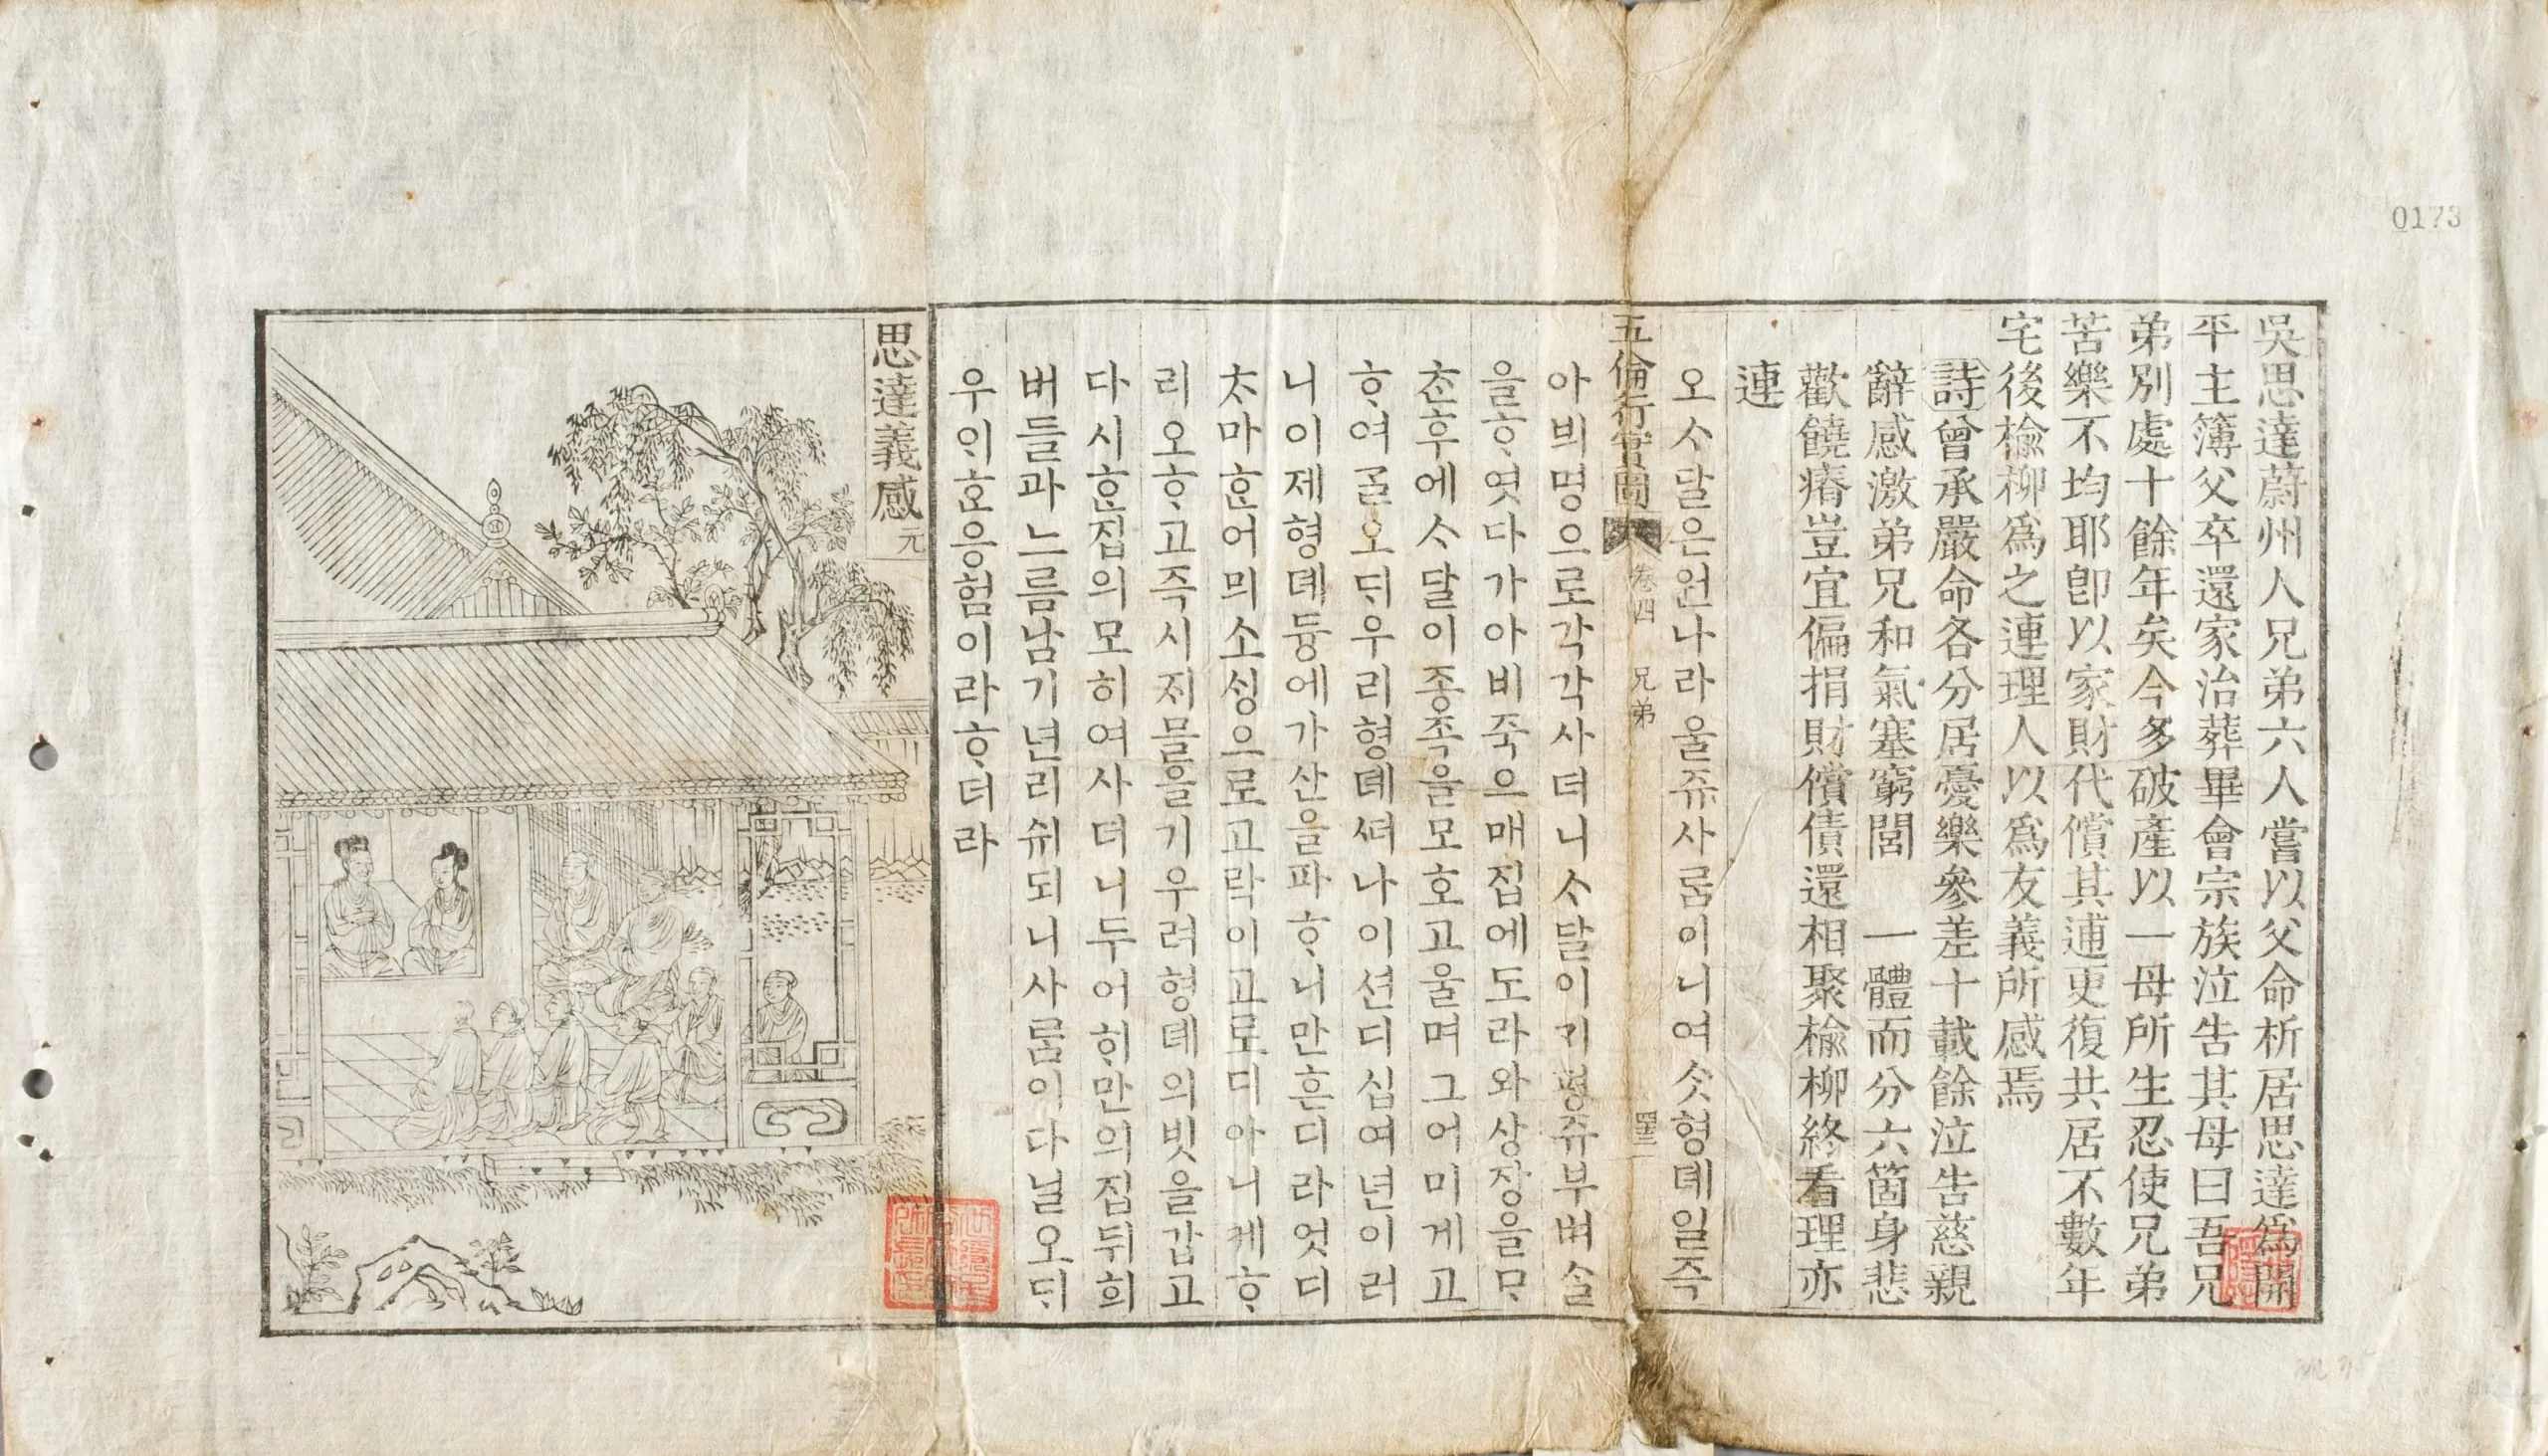 0173
吳思達蔚州人兄弟六人嘗以父命析居思達爲開
平主簿父卒還家治葬畢會宗族泣告其母曰吾兄
弟別處十餘年矣今多破產以一母所生忍使兄弟
苦樂不均耶卽以家財代償其逋更復共居不數年
宅後楡柳爲之連理人以爲友義所感焉
詩曾承嚴命各分居憂樂參差十載餘泣告慈親
辭感激弟兄和氣塞窮閭 一體而分六箇身悲
歡饒瘠豈宜偏捐財償債還相聚楡柳終看理亦
連
오ᄉᆞ달은원나라울쥬사ᄅᆞᆷ이니여ᄉᆞᆺ형뎨일즉
五倫行實圖 卷四 兄弟
아븨명으로각각사더니ᄉᆞ달이ᄀᆡ평쥬부벼ᄉᆞᆯ
을ᄒᆞ엿다가아비죽으매집에도라와상장을ᄆᆞ
ᄎᆞᆫ후에ᄉᆞ달이종족을모호고울며그어미게고
ᄒᆞ여ᄀᆞᆯ오ᄃᆡ우리형뎨ᄯᅥ나이션디십여년이러
니이제형뎨듕에가산을파ᄒᆞ니만흔디라엇디
ᄎᆞ마ᄒᆞᆫ어믜소ᄉᆡᆼ으로고락이고로디아니케ᄒᆞ
리오ᄒᆞ고즉시ᄌᆡ믈을기우려형뎨의빗을갑고
다시ᄒᆞᆫ집의모히여사더니두어ᄒᆡ만의집뒤희
버들과느름남기년리쉬되니사ᄅᆞᆷ이다닐오ᄃᆡ
우ᄋᆡ호응험이라ᄒᆞ더라
思達義感 元